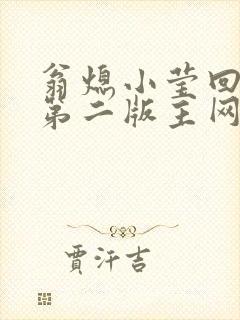 翁熄小莹回
第二版主网
贾汗吉